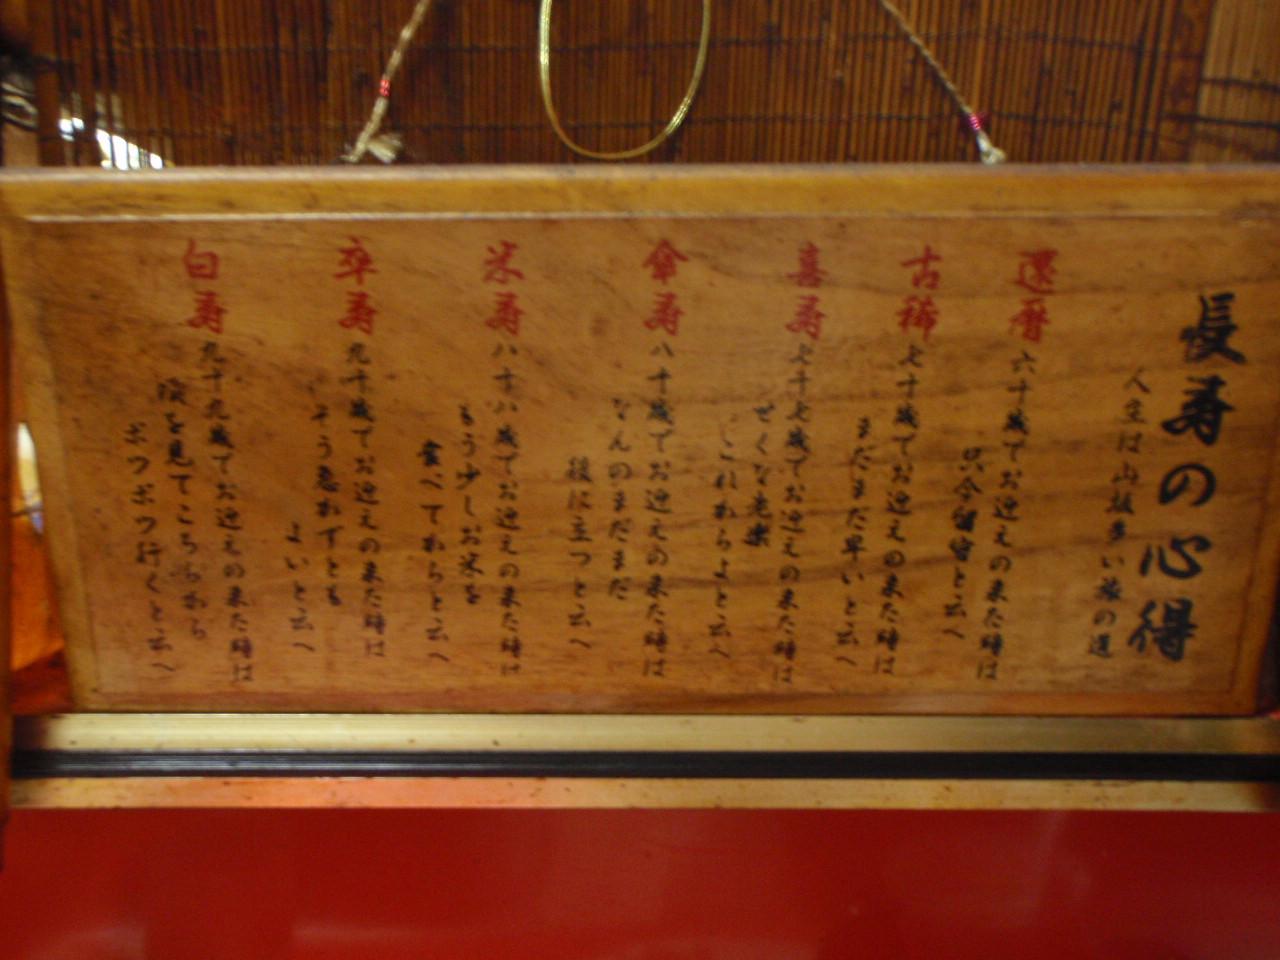 長寿の心得
人生は山坂多い旅の道
還暦
六十歳でお迎えの来た時は
只今留守と云へ
古稀
七十歳でお迎えの来た時は
まだまだ早いと云へ
喜寿
七十七歳でお迎えの来た時は
せくな老楽
これからよと云へ
傘寿
八十歳でお迎えの来た時は
なんのまだまだ
役に立つと云へ
米寿
八十八歳でお迎えの来た時は
もう少しお米を
食べてからと云へ
卒寿
九十歳でお迎えの来た時は
そう急がずとも
よいと云へ
白寿
九十九歳でお迎えの来た時は
頃を見てこちらから
ボツボツ行くと云へ